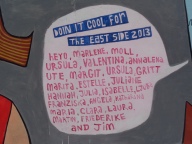 DOIN IT COOL FOR
THE EAST SIDE 2013
KEYO, MARLENE, MOLL,
URSULA, VALENTINA, ANNALENA
UTE, MARGIT, URSULA, GRITT
MARITA, ESTELLE, JULIANE
HANNAH, JULIA, ISABELLE,
FRANZISKA, ANGELA,
MARIA, CLARA, LAURA
FRIEDERIKE
AND JIM